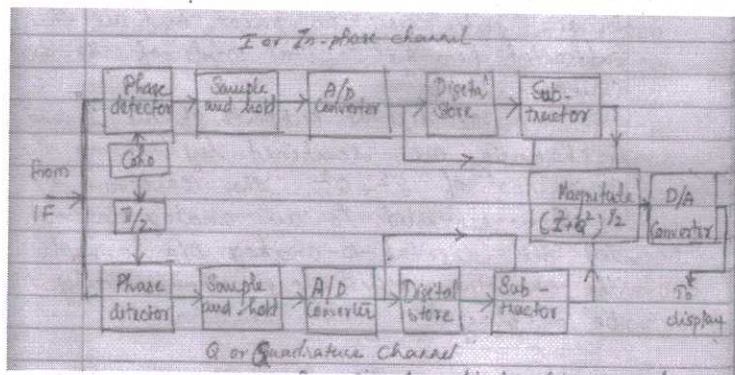 I or In-phase channel
Phase detector
Sample and hold
A/D Converter
Digital Store
Sub-tractor
from IF
Coho
π/2
Magnitude (I²+Q²)^1/2
D/A Converter
Phase detector
Sample and hold
A/D Converter
Digital store
Sub-tractor
To display
Q or Quadrature Channel